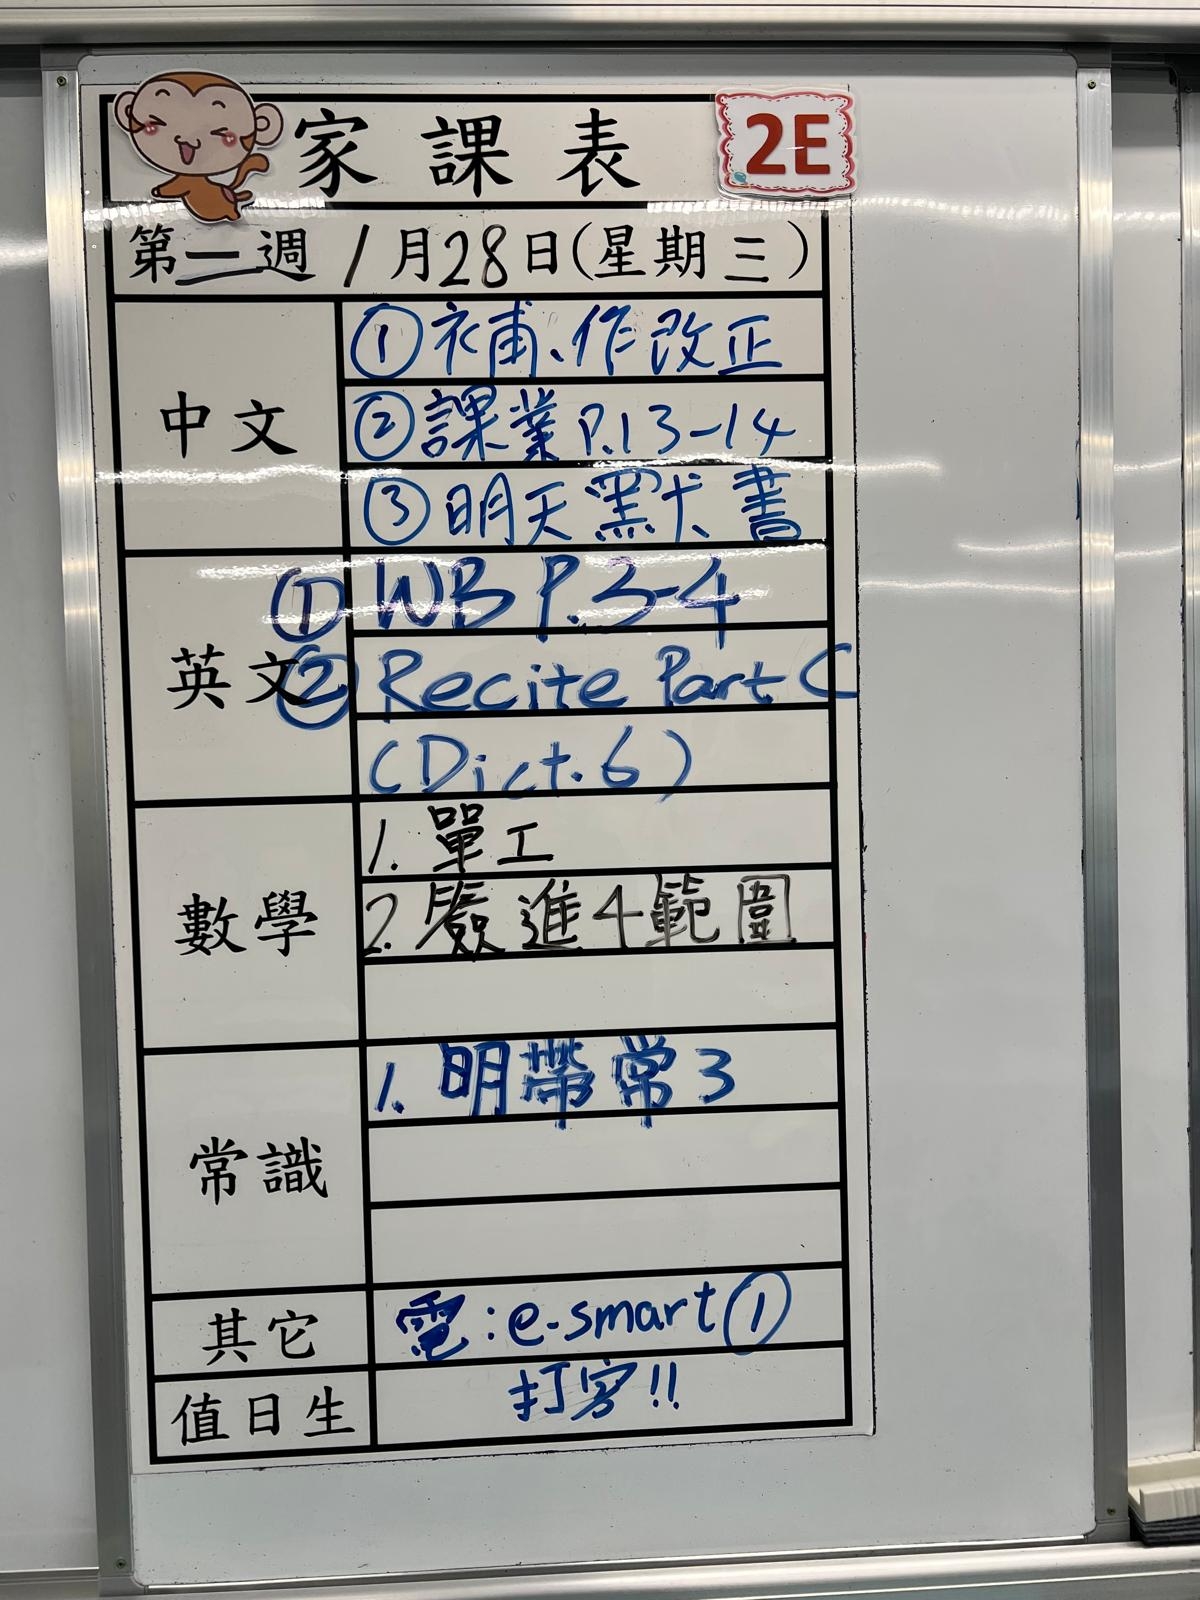 家課表 2E
第一週 1月28日(星期三)
中文
①補、作改正
②課業P.13-14
③明天默書
英文
① WB P.3-4
② Recite Part C
(Dict.6)
數學
1. 單工
2. 簽進4範圍
常識
1. 明帶常3
其它
電:e-smart①
值日生
打!!